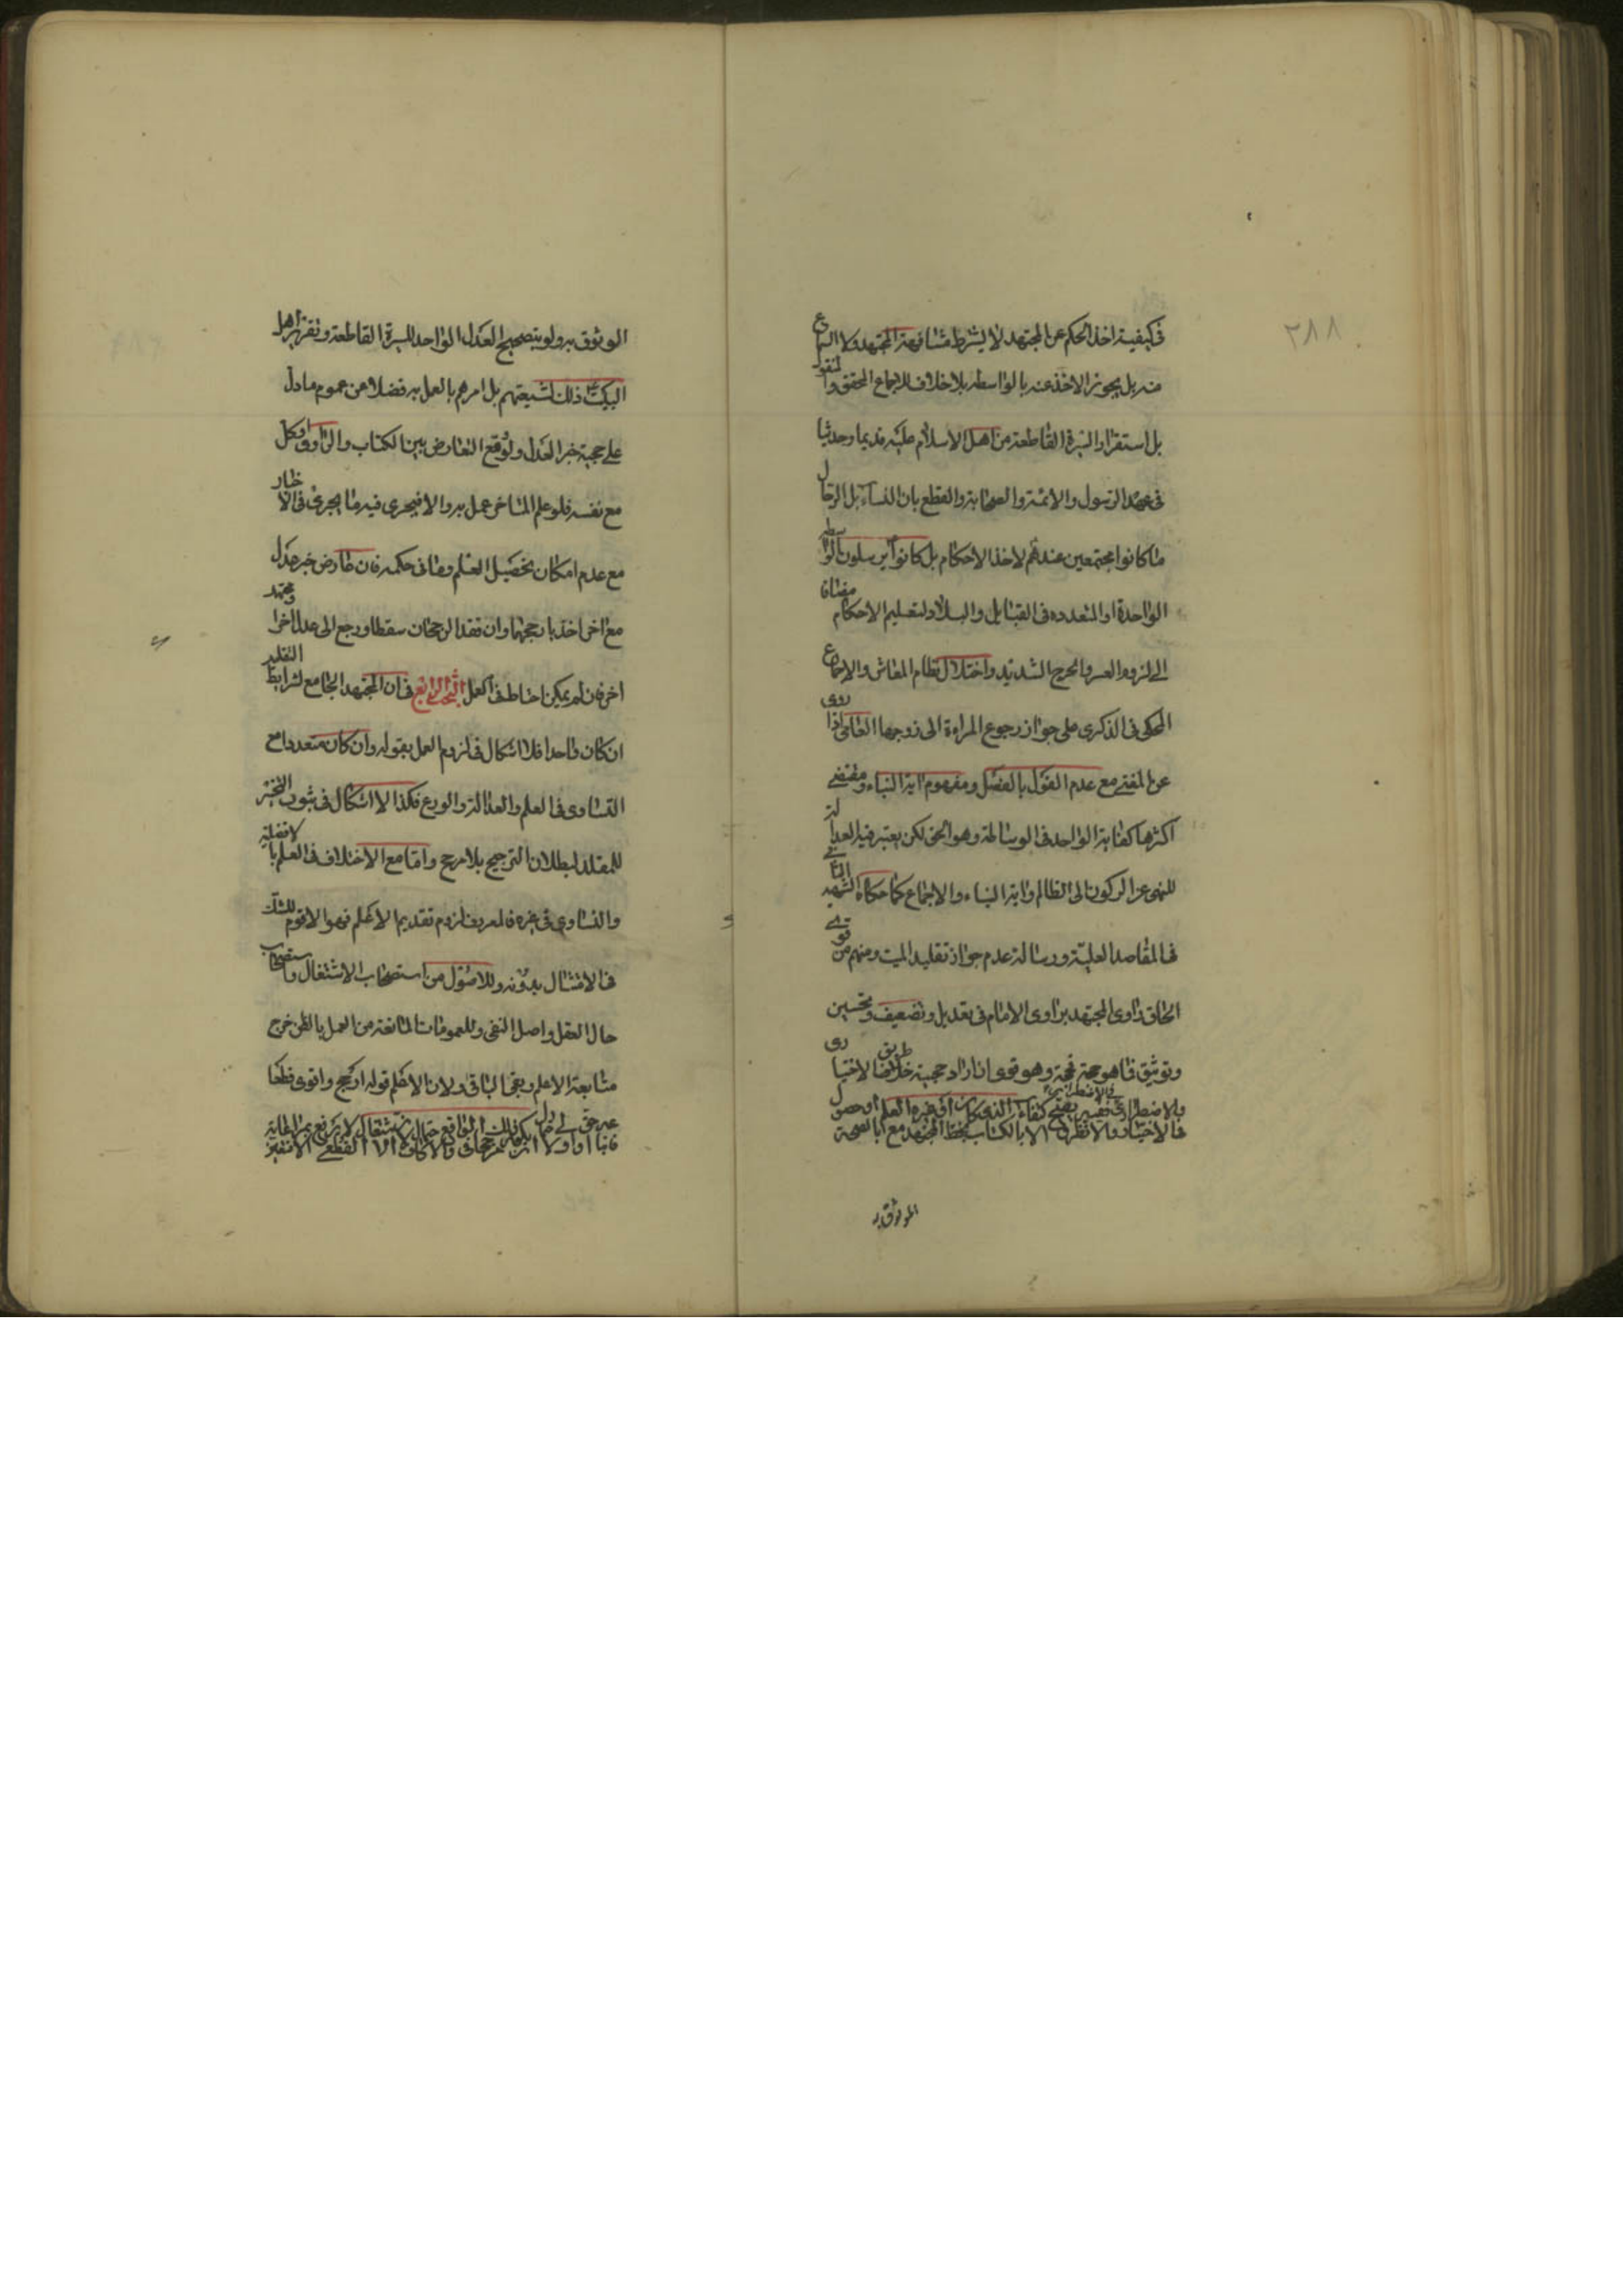 ٢٨٨
في كيفية اخذ الحكم عن المجتهد لا يشترط مشافهة المجتهد ولا السماع
منه بل يجوز الاخذ عنه بالواسطة بلا خلاف للاجماع المحقق والمنقول
بل استقرار السيرة القاطعة من اهل الاسلام عليه قديما وحديثا
في عهد الرسول والائمة والصحابة والقطع بان النساء بل الرجال
ما كانوا مجتمعين عندهم لاخذ الاحكام بل كانوا يرسلون بالواسطة
الواحدة او المتعددة في القبايل والبلاد لتعليم الاحكام مضافا
الى لزوم العسر والحرج الشديد واختلال نظام المعاش والاجماع
المحكي في الذكرى على جواز رجوع المراءة الى زوجها العامي اذا روى
عن المفتي مع عدم القول بالفصل ومفهوم اية النباء ومقتضى
اكثرها كفاية الواحد في الوساطة وهو الحق لكن يعتبر فيه العدالة
للنهي عن الركون الى الظالم واية النباء والاجماع كما حكاه الشهيد الثاني
في المقاصد العلية ورسالة عدم جواز تقليد الميت ومنهم من قوى
الحاق راوي المجتهد براوي الامام في تعديل وتضعيف وتحسين
وتوثيق فما هو حجة ثمة حجة وهو قوي ان اراد حجية طريق الاختياري
في الاختيار والاضطراري
الموثوق به
الوثوق به ولو بتصحيح العدل الواحد للسيرة القاطعة وتقرير اهل
البيت ذلك لشيعتهم بل امرهم بالعمل به فضلا عن عموم ما دل
على حجية خبر العدل ولو وقع التعارض بين الكتاب والراوي او كل
مع نفسه فلو علم المتاخر عمل به والا فيجرى فيه ما يجرى في الاخبار
مع عدم امكان تحصيل العلم وما في حكمه فان عارض خبر عدل
مع اخر اخذ بارجحهما وان فقد الرجحان سقطا ورجع الى عدل اخر او مجتهد
اخر فان لم يمكن احتاط في العمل البحث الرابع في ان المجتهد الجامع لشرايط التقليد
ان كان واحدا فلا اشكال في لزوم العمل بقوله وان كان متعددا مع
التساوي في العلم والعدالة والورع فكذا لا اشكال في ثبوت التخيير
للمقلد لبطلان الترجيح بلا مرجح واما مع الاختلاف في العلم بالافضلية
والتساوي في غيره فالمعروف لزوم تقديم الاعلم فهو الاقوم للشك
في الامتثال بدونه وللاصول من استصحاب الاشتغال واستصحاب
حال العقل واصل النفي وللعمومات المانعة من العمل بالظن خرج
متابعة الاعلم وبقي الباقي ولان الاعلم قوله ارجح واقوى قطعا